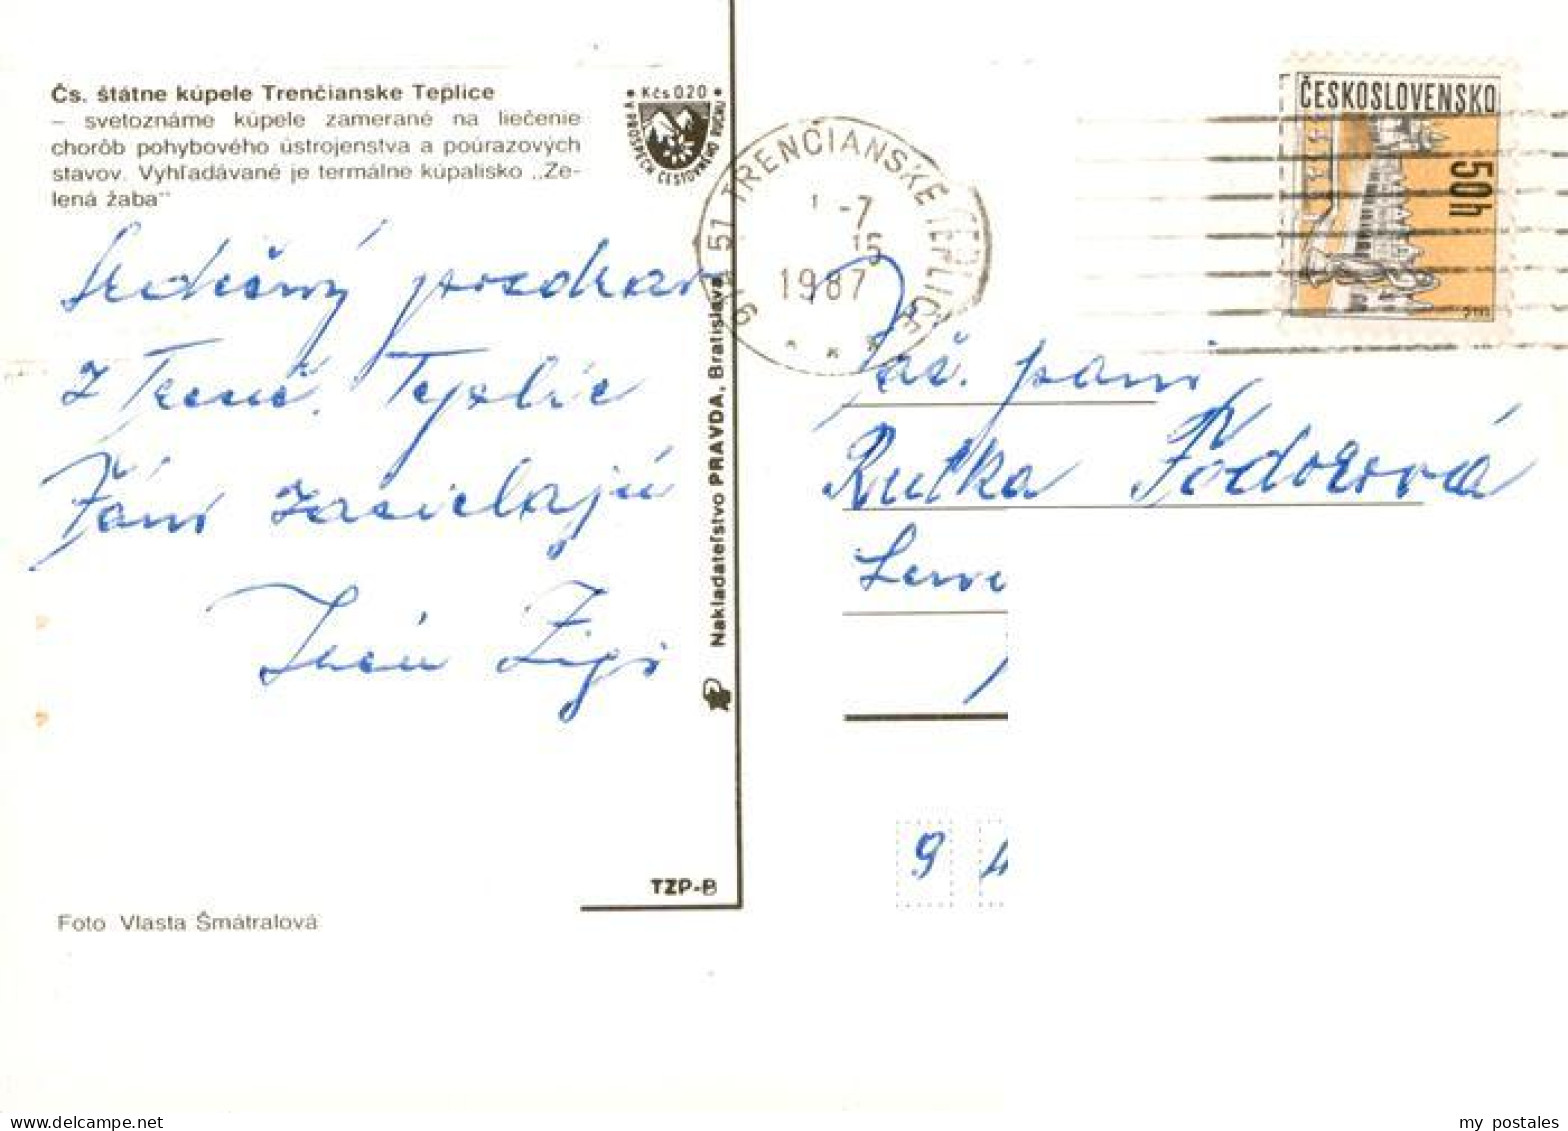 Čs. štátne kúpele Trenčianske Teplice
– svetoznáme kúpele zamerané na liečenie
chorôb pohybového ústrojenstva a poúrazových
stavov. Vyhľadávané je termálne kúpalisko „Ze-
lená žaba"
Kčs 020
V PROSPECH CESTOVNÉHO RUCHU
Srdečný pozdrav
z Trenč. Teplic
Vám zasielajú
Zigi
Nakladateľstvo PRAVDA, Bratislava
TZP-B
Foto Vlasta Šmátralová
TRENČIANSKE TEPLICE
1-7
15
1987
ČESKOSLOVENSKO
50h
Váž. pani
Rutka Fodorová
9 4
my postales